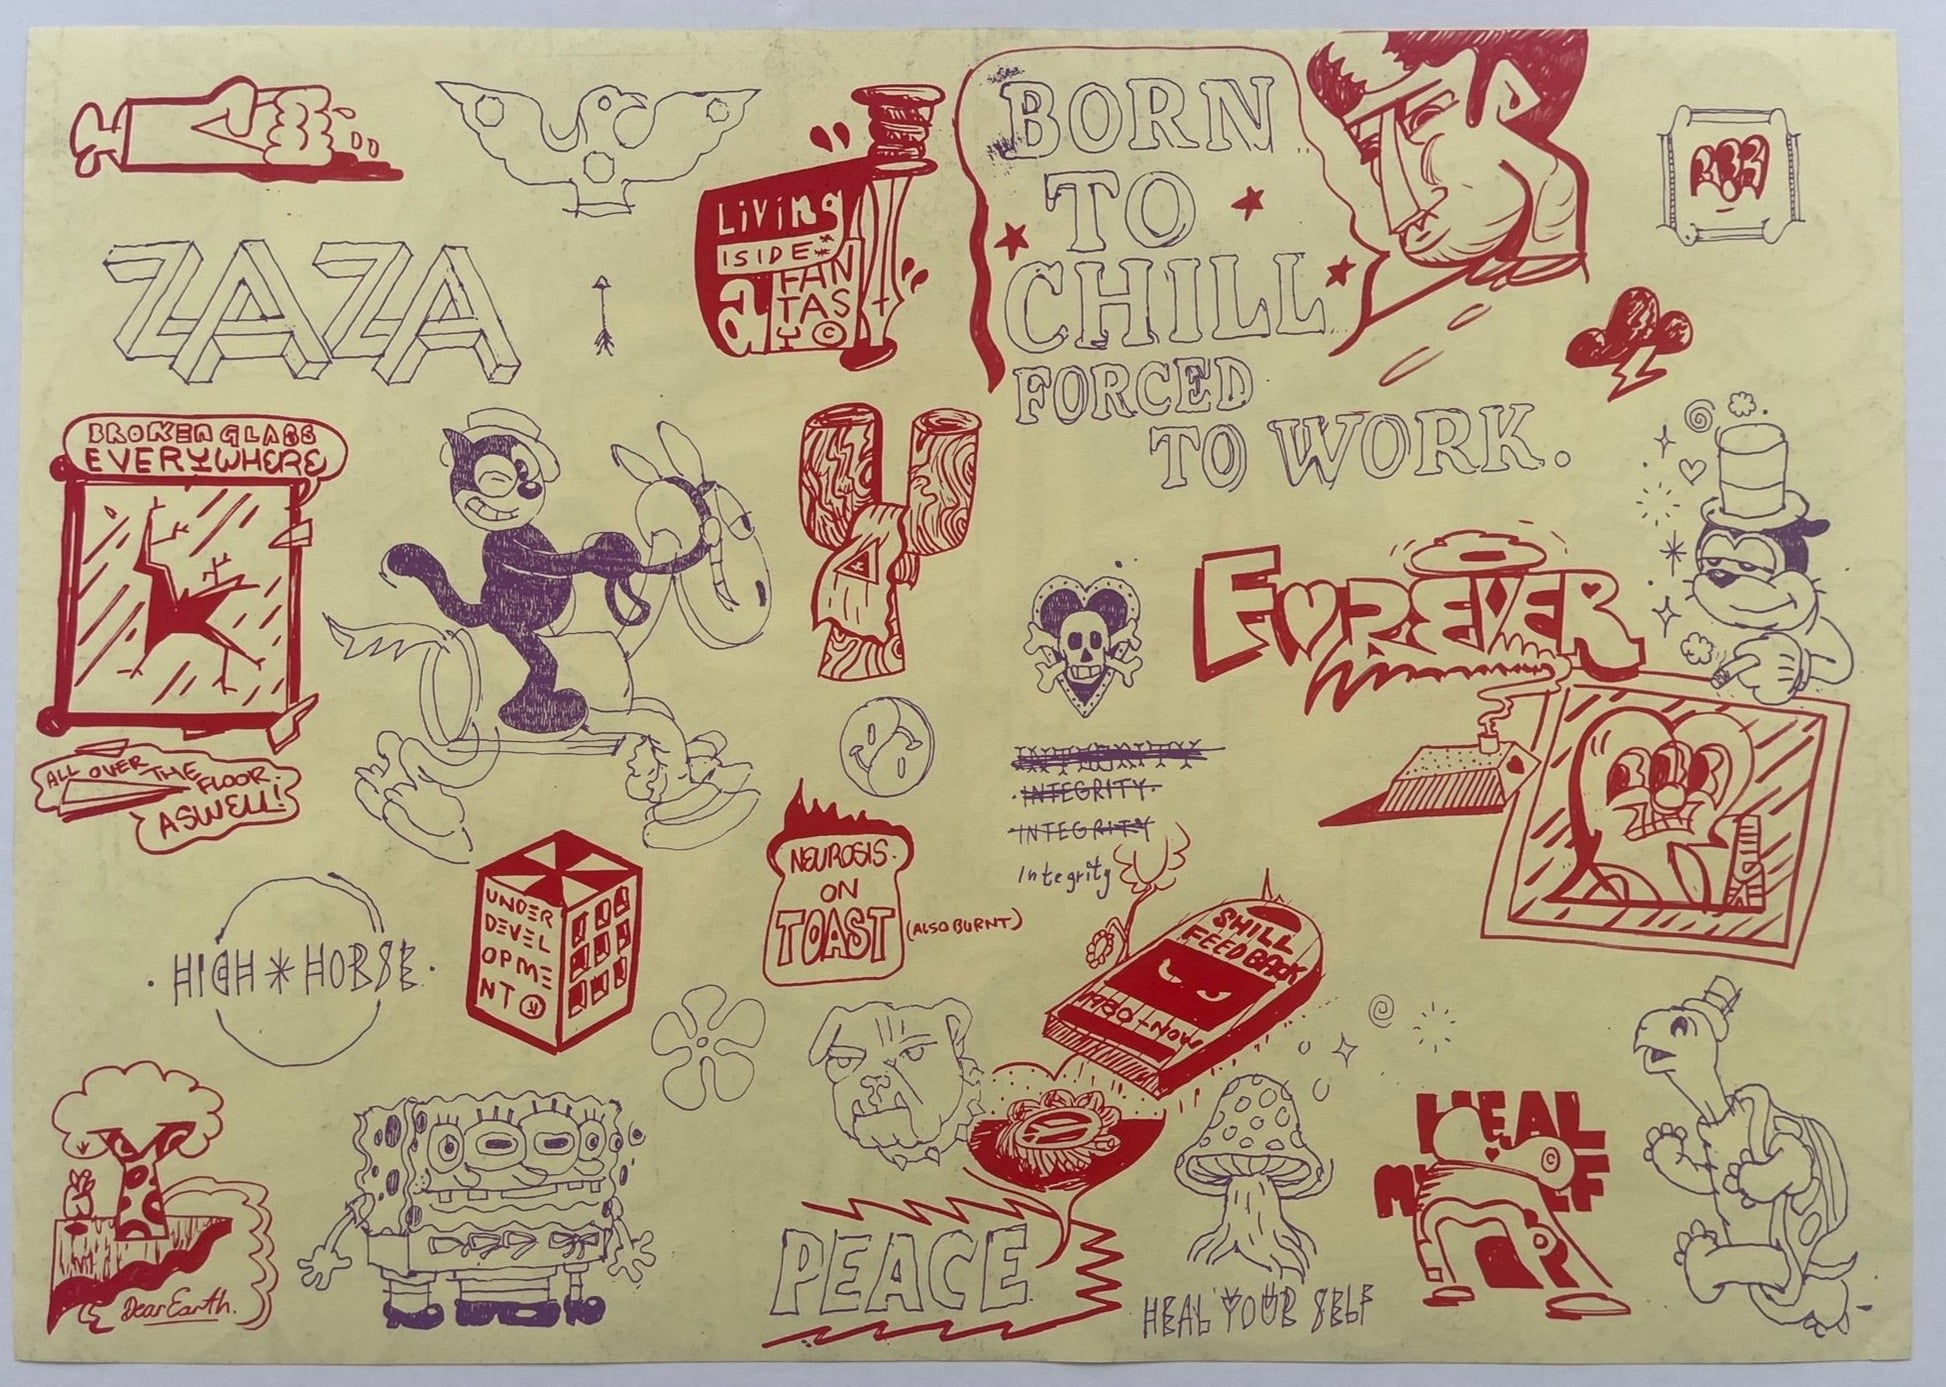 LiViNG
ISIDE*
a FAN
TAS
Y ©
BORN
TO
CHILL
FORCED
TO WORK.
ZAZA
BROKEN GLASS
EVERYWHERE
ALL OVER THE FLOOR.
ASWELL!
FOREVER
INTEGRITY.
INTEGRITY
Integrity
NEUROSIS.
ON
TOAST
(ALSO BURNT)
UNDER
DEVEL
OPME
NT
SHILL
FEED BACK
1930-NOW
·HIGH*HORSE·
HEAL
MY
LF
©
Dear Earth.
PEACE
HEAL YOUR SELF